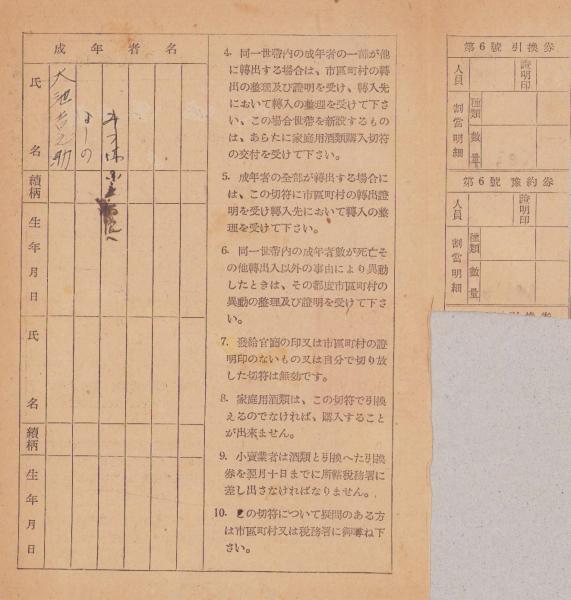 成年者名
氏名
大池吉之助
よしの
續柄
生年月日
氏名
續柄
生年月日
4. 同一世帶内の成年者の一部が他
に轉出する場合は、市區町村の轉
出の整理及び證明を受け、轉入先
において轉入の整理を受けて下さ
い、この場合世帶を新設するもの
は、あらたに家庭用酒類購入切符
の交付を受けて下さい。
5. 成年者の全部が轉出する場合に
は、この切符に市區町村の轉出證
明を受け轉入先において轉入の整
理を受けて下さい。
6. 同一世帶内の成年者數が死亡そ
の他轉出入以外の事由により異動
したときは、その都度市區町村の
異動の整理及び證明を受けて下さ
い。
7. 發給官廳の印又は市區町村の證
明印のないもの又は自分で切り放
した切符は無効です。
8. 家庭用酒類は、この切符で引換
えるのでなければ、購入すること
が出来ません。
9. 小賣業者は酒類と引換へた引換
券を翌月十日までに所轄税務署に
差し出さなければなりません。
10. この切符について疑問のある方
は市區町村又は税務署に御尋ね下
さい。
第6號引換券
人員
證明印
割當明細
種類
數量
第6號豫約券
人員
證明印
割當明細
種類
數量